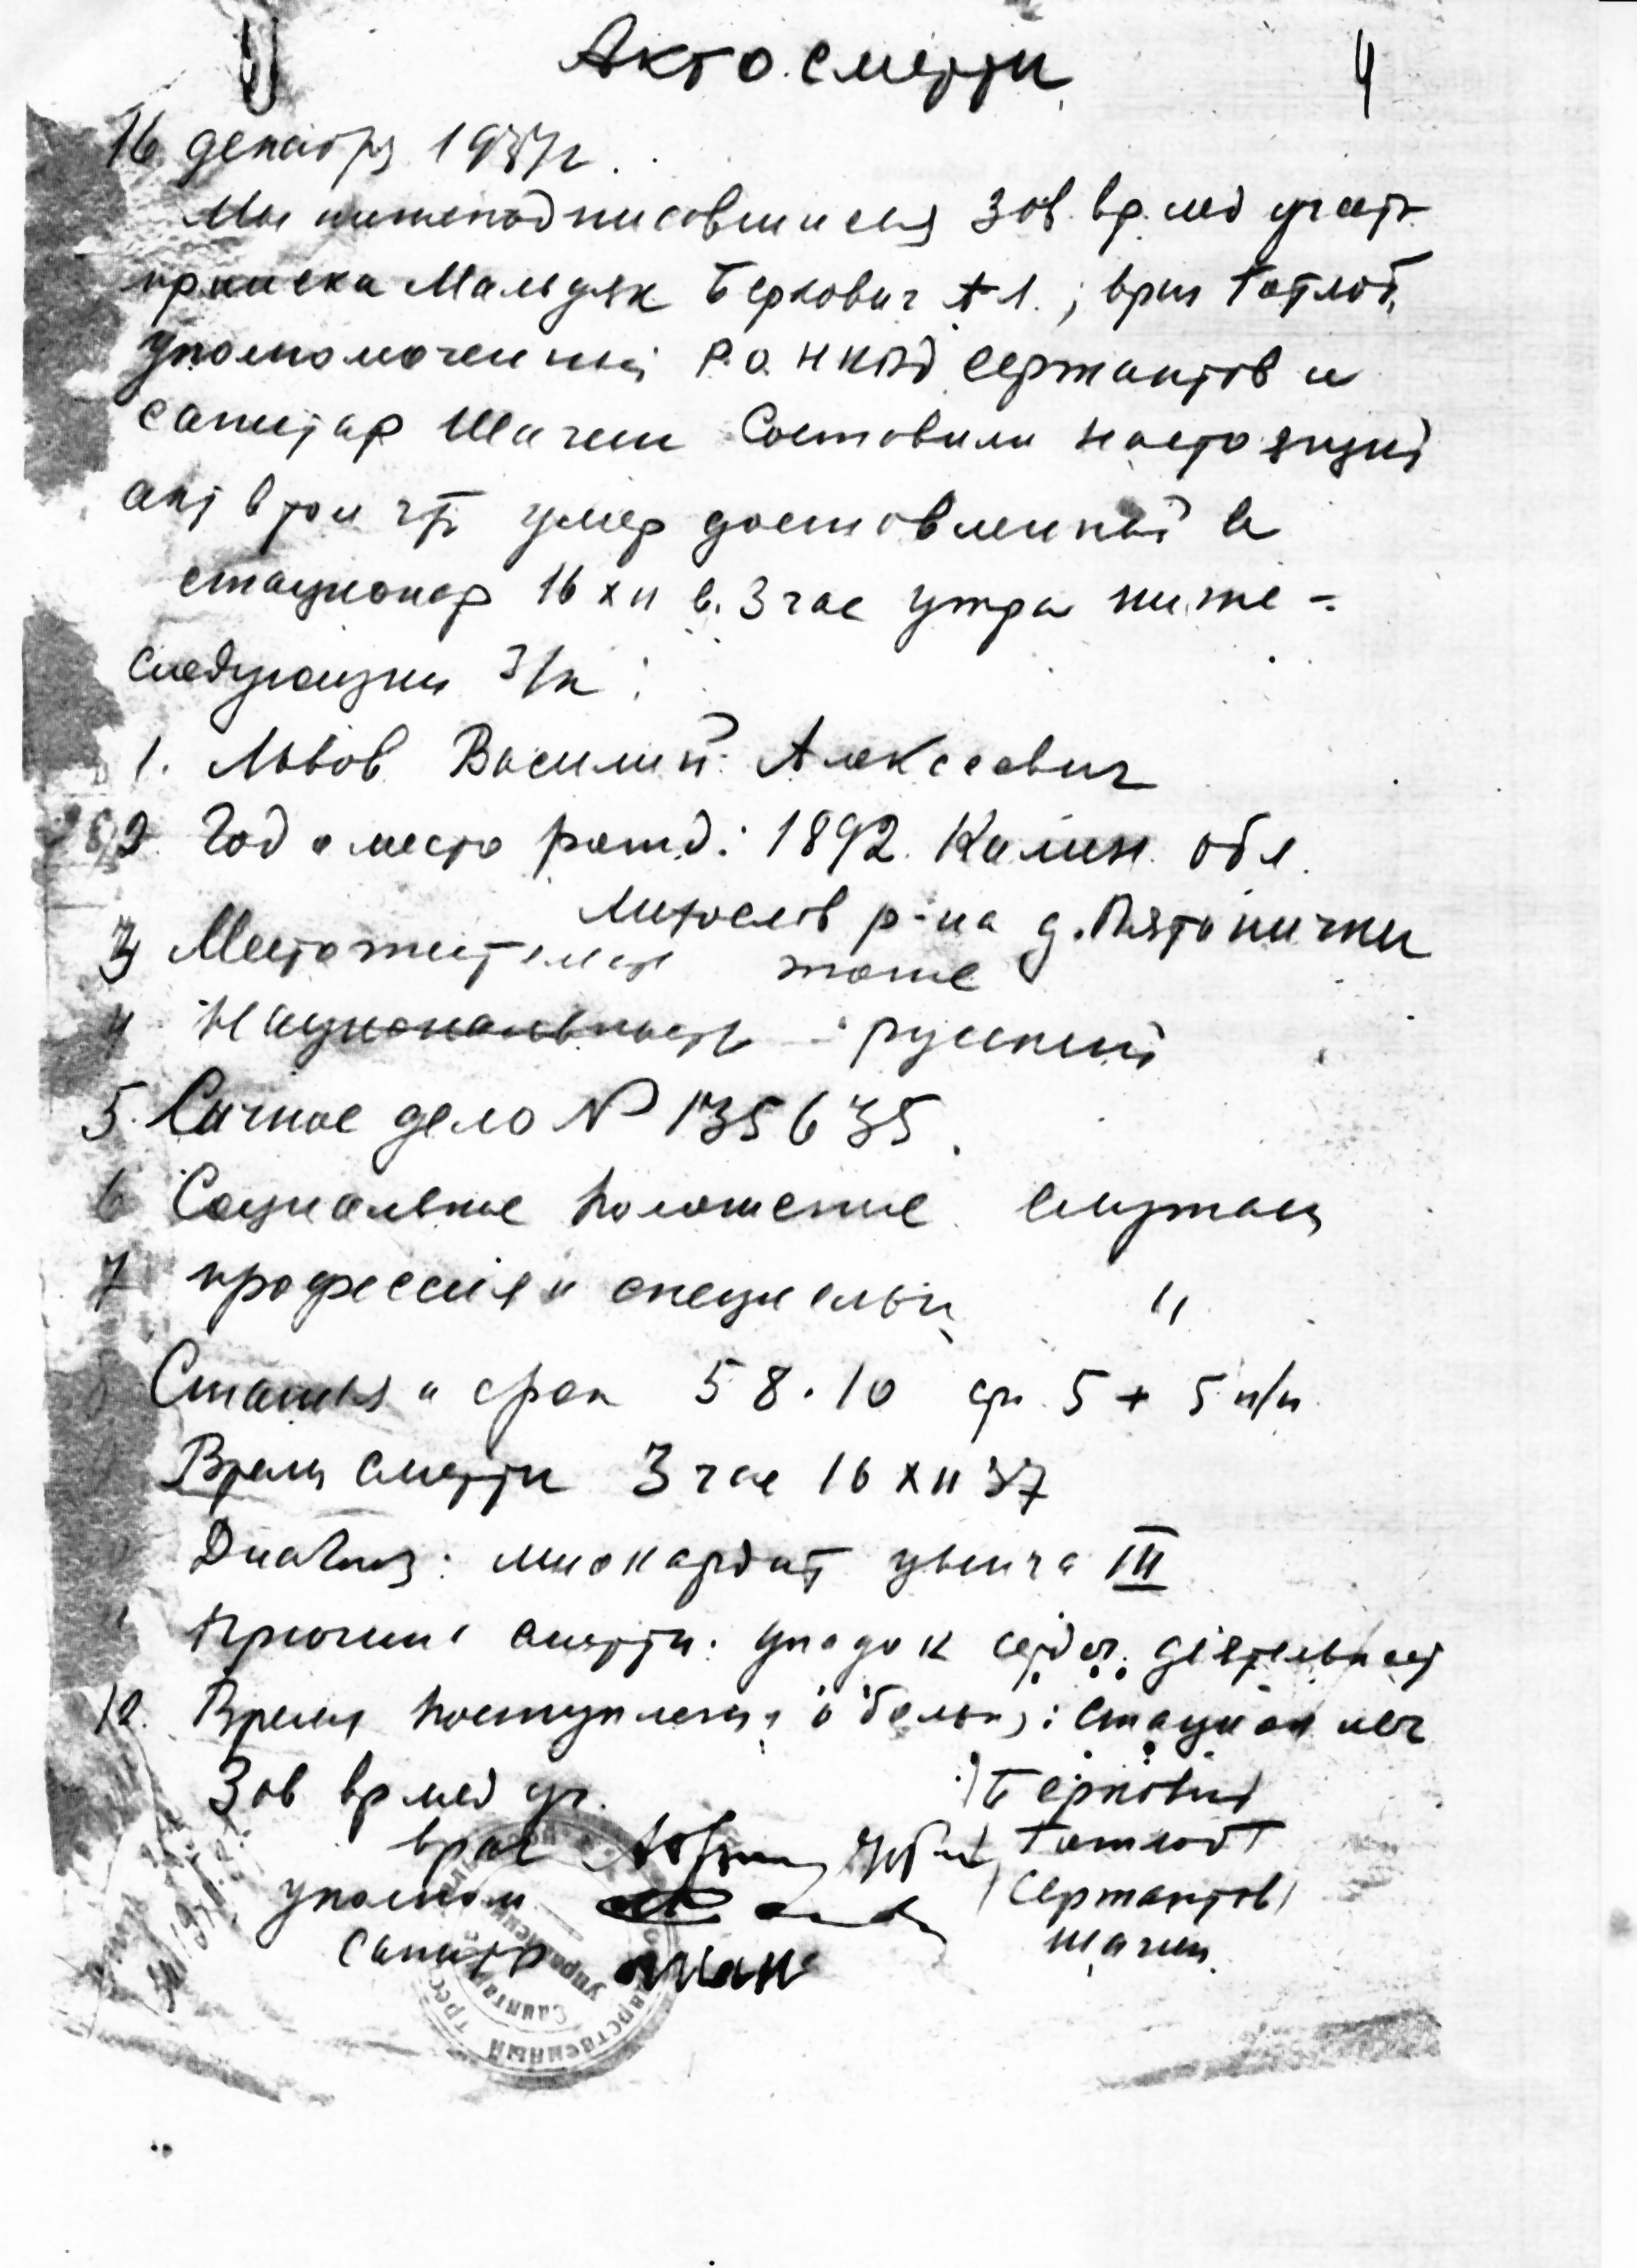 Акт о смерти
4
16 декабря 1937 г.
Мы нижеподписавшиеся Зав. вр. мед участ.
прииска Мальдяк Беркович А Л.; врач Готлоб,
Уполномоченный Р.О. НКВД Сержантов и
санитар Шагин Составили настоящий
акт в том что умер доставленный в
стационар 16 XII в 3 час утра ниже-
следующий з/к:
1. Львов Василий Алексеевич
2 Год и место рожд: 1892. Калин. обл.
р-на д. Пятнички
3 Местожительст тоже
4 Национальность - русский
5. Личное дело № 135635.
6 Социальное положение служащ
7 профессия и специальн "
Статья и срок 58.10 ср. 5 + 5 п/п
Время смерти 3 час 16 XII 37
Диагноз: миокардит III
Причина смерти: упадок сердеч. деятельност
12. Время поступления в больн:
Зав вр мед уч. Беркович
врач Готлоб
уполном (Сержантов)
санитар Шагин